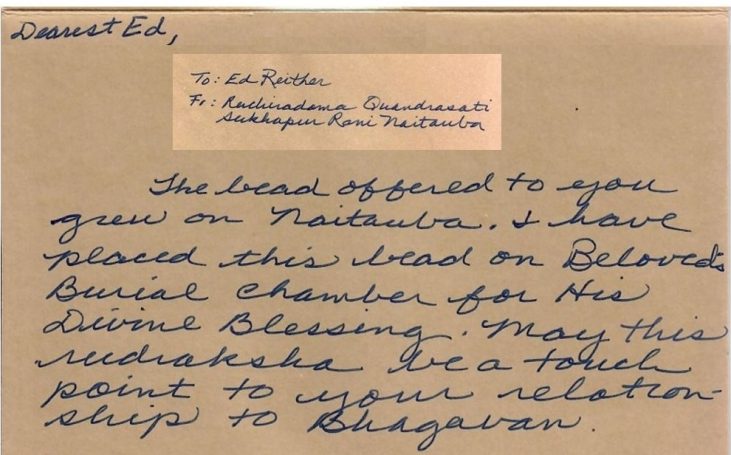 Dearest Ed,
To: Ed Reither
Fr: Ruchiradama Quandrasati
Sukhapur Rani Naitauba
The bead offered to you
grew on Naitauba. I have
placed this bead on Beloved's
Burial Chamber for His
Divine Blessing. May this
rudraksha be a touch
point to your relation-
ship to Bhagavan.